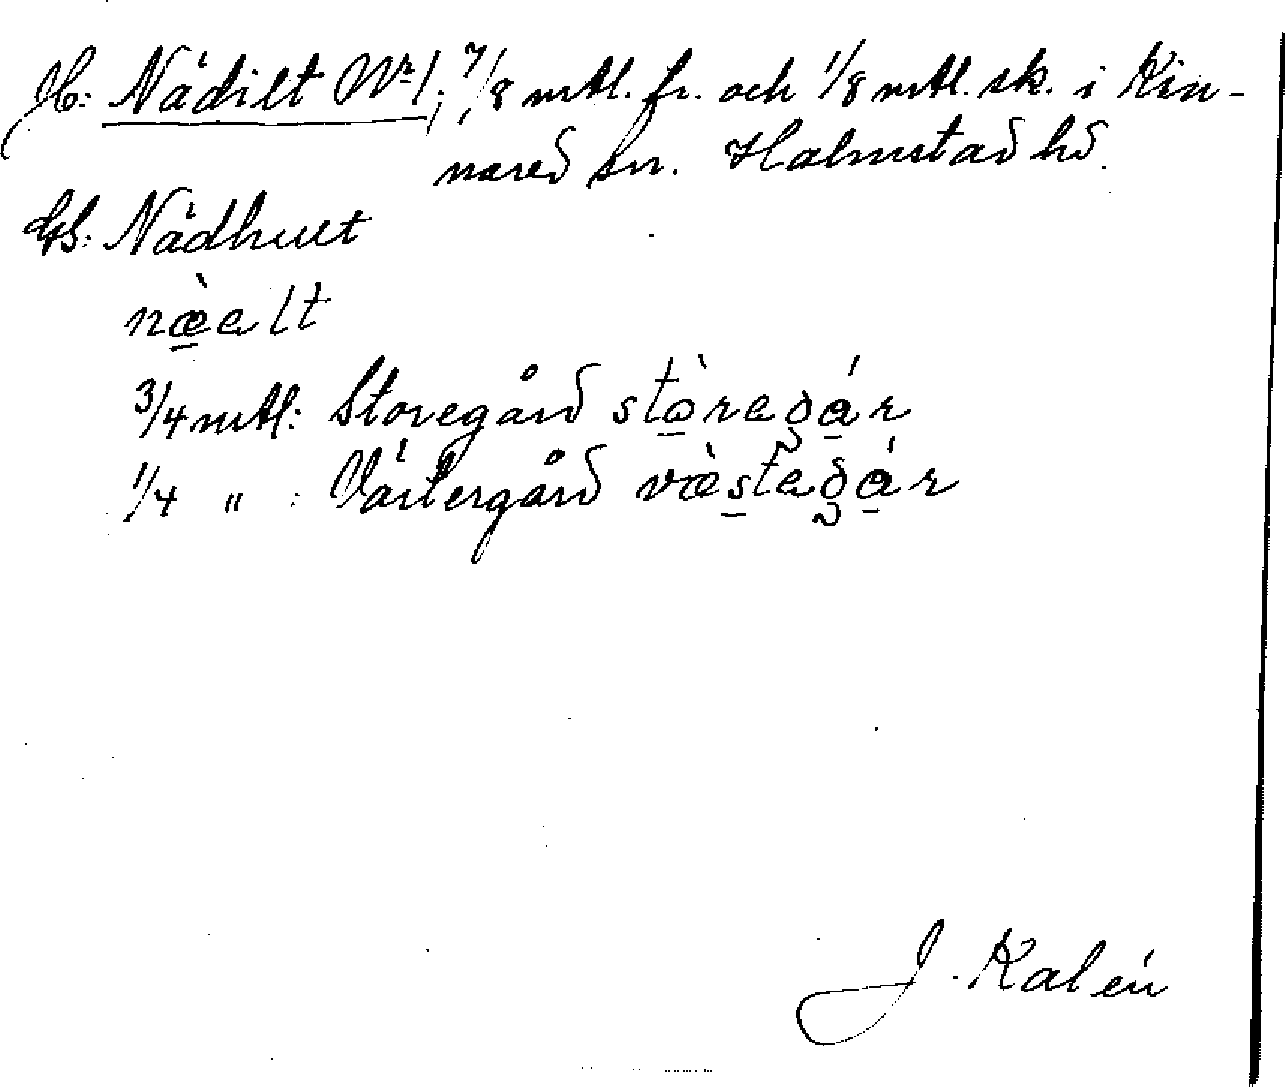 Jb: Nädilt Nr 1; 7/8 mtl. fr. och 1/8 mtl. sk. i Kin-
nared sn. Halmstad hd.
GS: Nädhult
næ̀alt
3/4 mtl: Storegård stòregár
1/4 " : Västergård væ̀stegár
J. Kalén